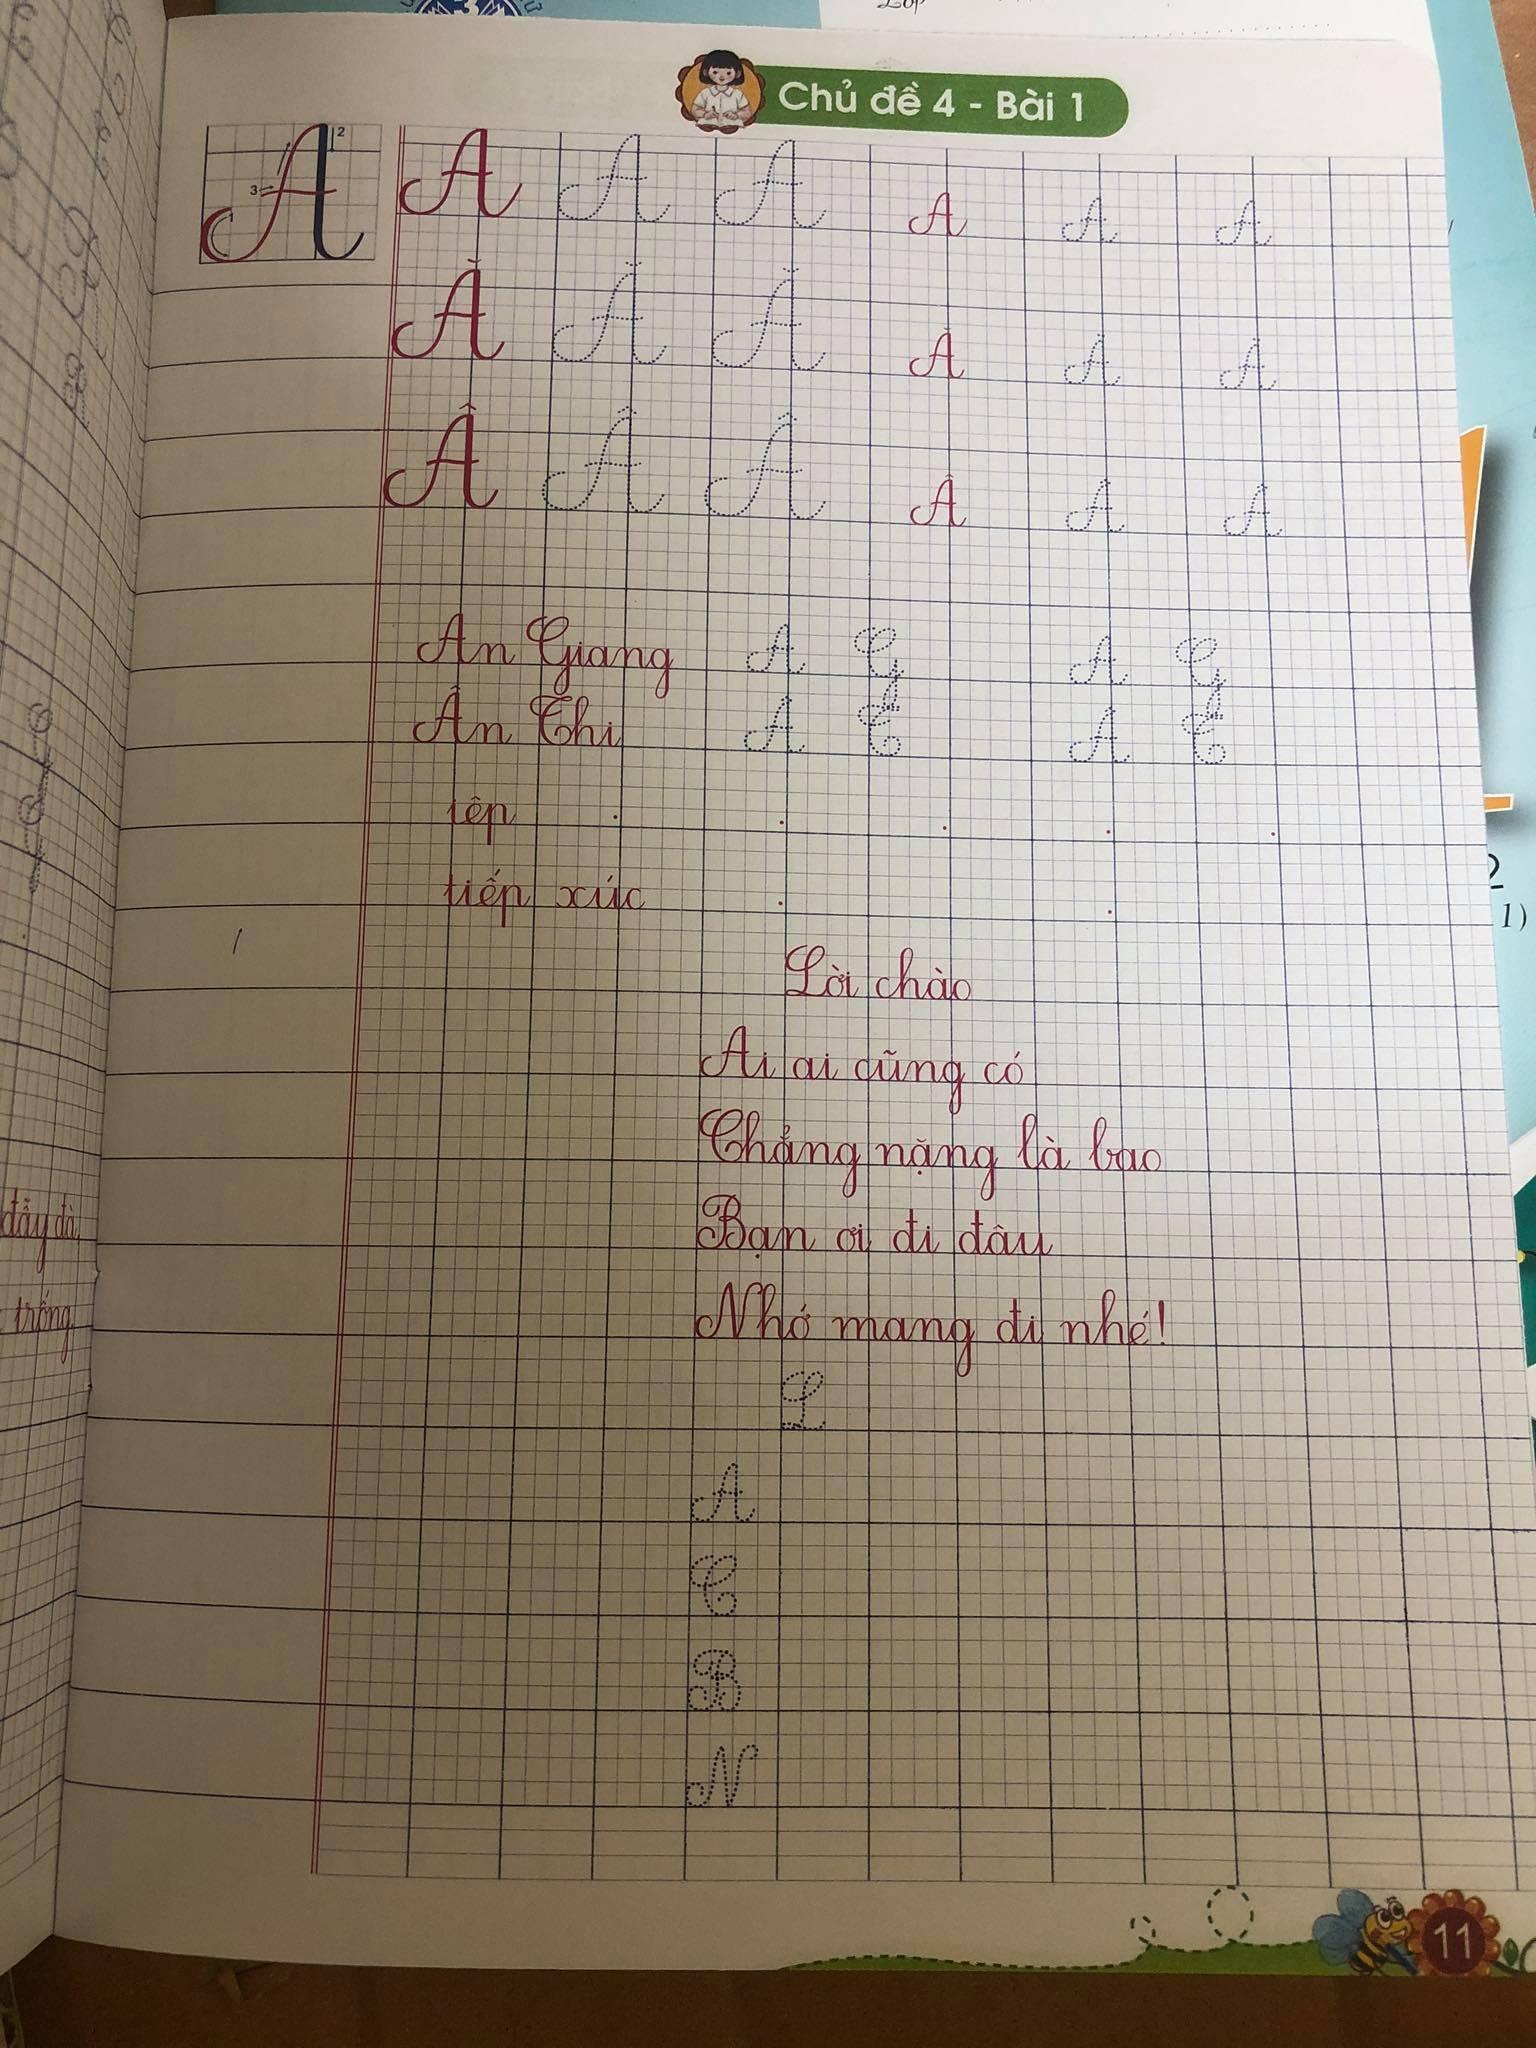 Lớp
Chủ đề 4 - Bài 1
2
3
A A A A A A
Ă Ă Ă Ă Ă Ă
Â Â Â Â Â Â
An Giang A G A G
Ân Thi Â T Â T
iêp
tiếp xúc
Lời chào
Ai ai cũng có
Chẳng nặng là bao
Bạn ơi đi đâu
Nhớ mang đi nhé!
L
A
C
B
N
đầy đà
trống
2
1)
11